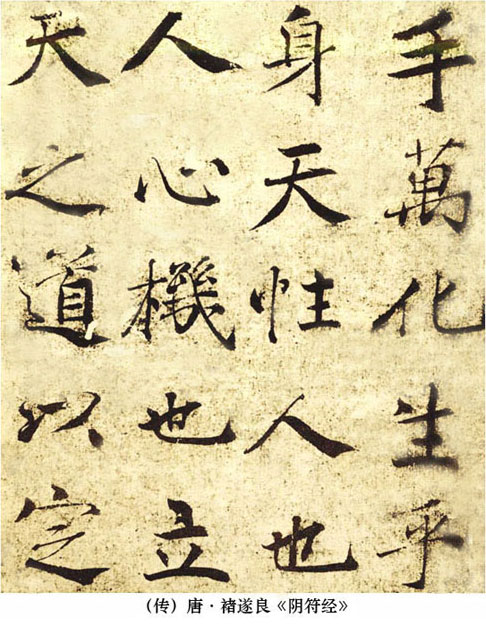 手萬化生乎
身天性人也
人心機也立
天之道以定
（传）唐·褚遂良《阴符经》